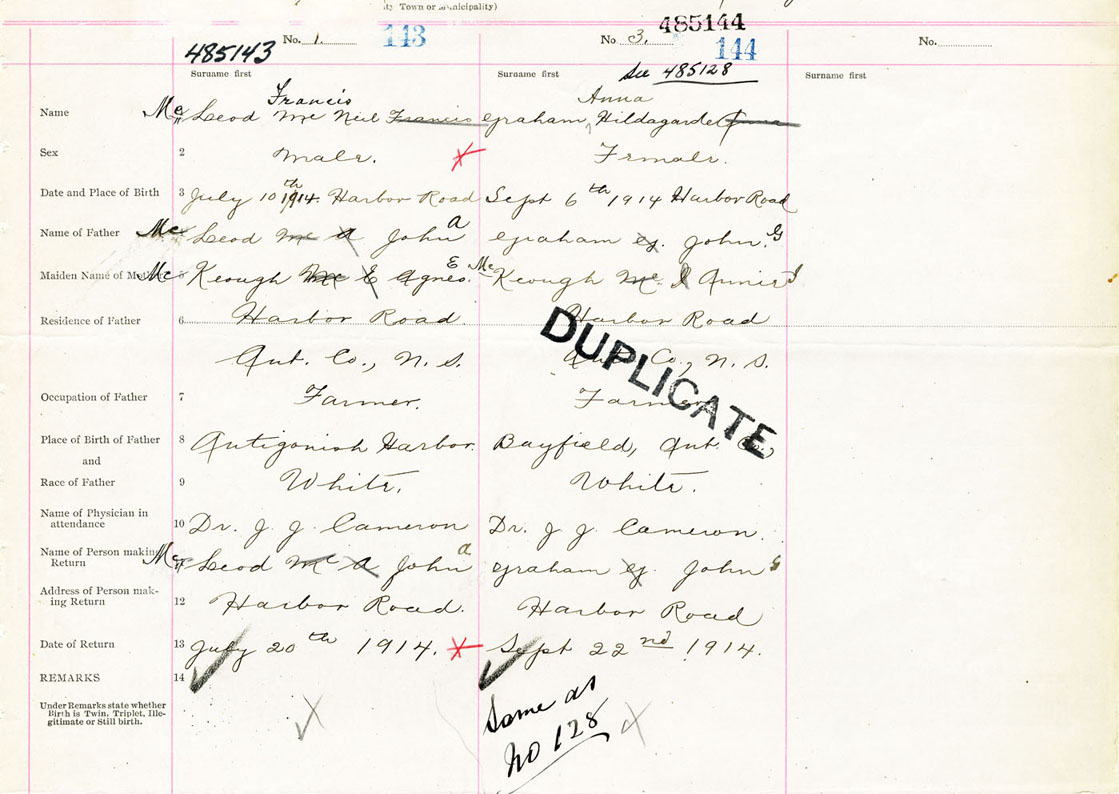 Town or Municipality)
485144
No. 1. 143 No 3. 144 No.
485143 See 485128
Surname first Surname first Surname first
Francis Anna
Name Mc Leod Mc Neil Francis Graham, Hildagarde Anna
Sex 2 Male. Female.
Date and Place of Birth 3 July 10th 1914. Harbor Road Sept 6th 1914 Harbor Road
Name of Father Mc Leod Mc A John A Graham G. John. G
Maiden Name of Mother Mc 5 Keough Mc E Agnes. E Mc Keough Mc I Annie I
Residence of Father 6 Harbor Road. Harbor Road
Ant. Co., N. S. Ant. Co., N. S.
DUPLICATE
Occupation of Father 7 Farmer. Farmer
Place of Birth of Father 8 Antigonish Harbor. Bayfield, Ant. Co.
and
Race of Father 9 White. White.
Name of Physician in
attendance 10 Dr. J. J. Cameron Dr. J. J. Cameron.
Name of Person making
Return Mc 11 Leod Mc A John A Graham G. John G
Address of Person mak-
ing Return 12 Harbor Road. Harbor Road
Date of Return 13 July 20th 1914. Sept 22nd 1914.
REMARKS 14
Under Remarks state whether
Birth is Twin, Triplet, Ille-
gitimate or Still birth.
Same as
No 128